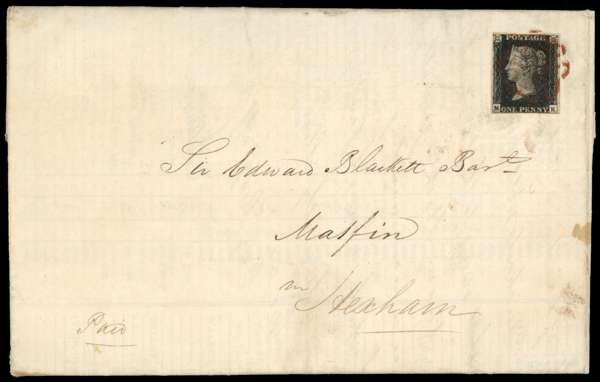 POSTAGE
ONE PENNY
Sir Edward Blackett Bart
Matfin
nr Hexham
Paid